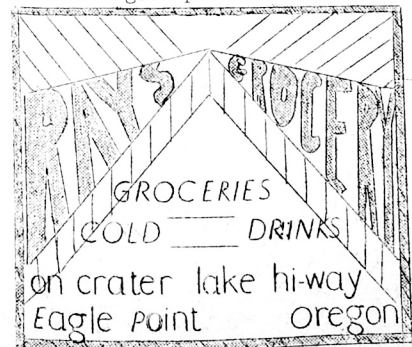 RAY'S GROCERY
GROCERIES
COLD DRINKS
on crater lake hi-way
Eagle Point oregon